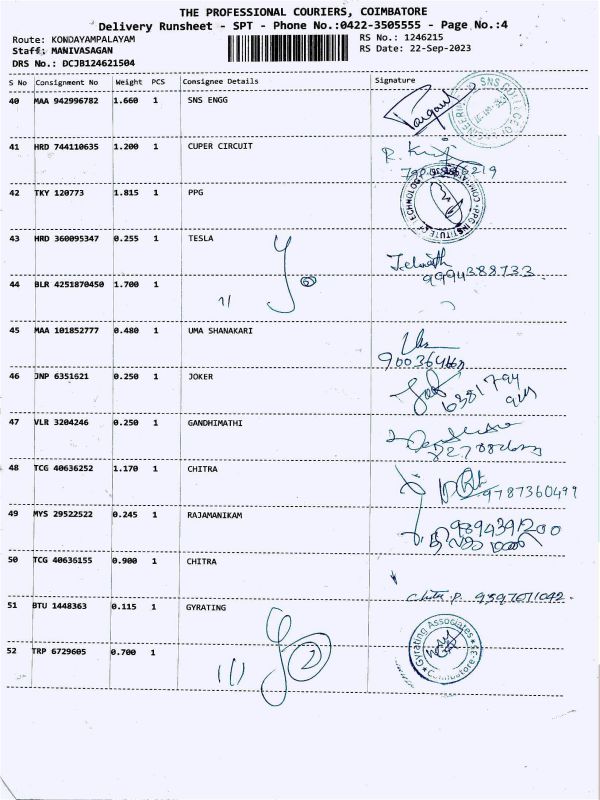 THE PROFESSIONAL COURIERS, COIMBATORE
Delivery Runsheet - SPT - Phone No.:0422-3505555 - Page No.:4
Route: KONDAYAMPALAYAM RS No.: 1246215
Staff: MANIVASAGAN RS Date: 22-Sep-2023
DRS No.: DCJB124621504
S No Consignment No Weight PCS Consignee Details Signature
40 MAA 942996782 1.660 1 SNS ENGG
41 HRD 744110635 1.200 1 CUPER CIRCUIT
42 TKY 120773 1.815 1 PPG
43 HRD 360095347 0.255 1 TESLA
9994388733
44 BLR 4251870450 1.700 1
45 MAA 101852777 0.480 1 UMA SHANAKARI
46 JNP 6351621 0.250 1 JOKER
47 VLR 3204246 0.250 1 GANDHIMATHI
48 TCG 40636252 1.170 1 CHITRA
9787360499
49 MYS 29522522 0.245 1 RAJAMANIKAM
9894391200
50 TCG 40636155 0.900 1 CHITRA
51 BTU 1448363 0.115 1 GYRATING
Gyrating Associates
Coimbatore-35
52 TRP 6729605 0.700 1
2